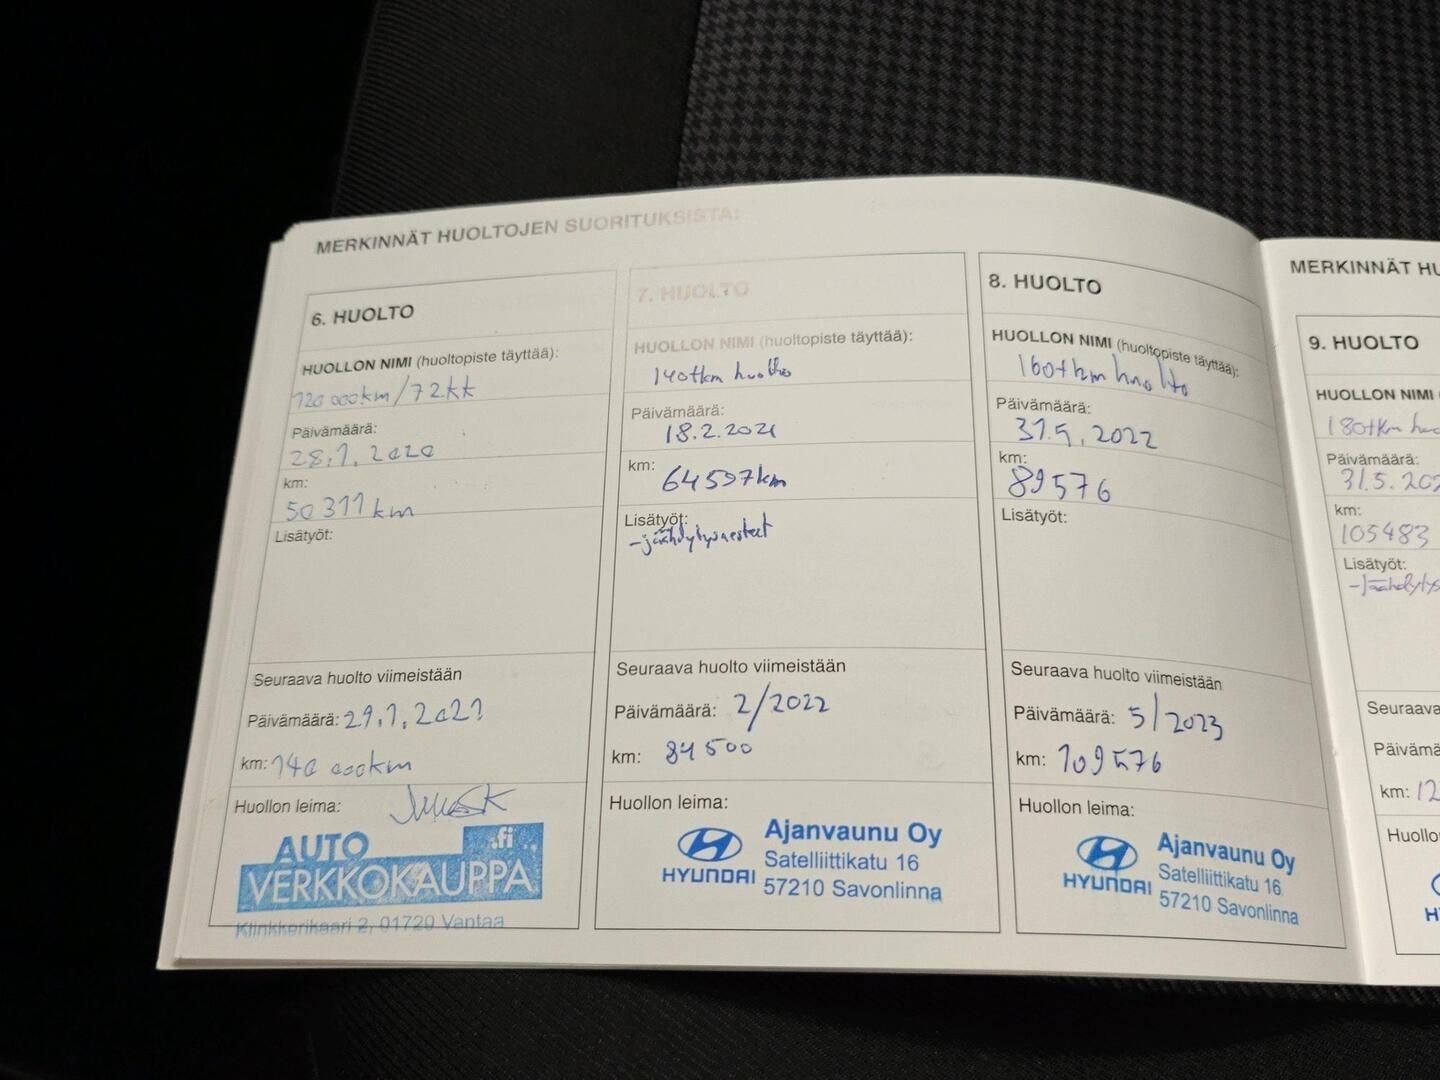 MERKINNÄT HUOLTOJEN SUORITUKSISTA:
6. HUOLTO
HUOLLON NIMI (huoltopiste täyttää):
120 000km/72kk
Päivämäärä:
28.1.2020
km:
50311km
Lisätyöt:
Seuraava huolto viimeistään
Päivämäärä: 29.1.2021
km: 140 000km
Huollon leima:
AUTO .fi
VERKKOKAUPPA
Klinkkerikaari 2, 01720 Vantaa
7. HUOLTO
HUOLLON NIMI (huoltopiste täyttää):
140tkm huolto
Päivämäärä:
18.2.2021
km:
64597km
Lisätyöt:
-jäähdytysnesteet
Seuraava huolto viimeistään
Päivämäärä: 2/2022
km: 84500
Huollon leima:
HYUNDAI
Ajanvaunu Oy
Satelliittikatu 16
57210 Savonlinna
8. HUOLTO
HUOLLON NIMI (huoltopiste täyttää):
160tkm huolto
Päivämäärä:
31.5.2022
km:
89576
Lisätyöt:
Seuraava huolto viimeistään
Päivämäärä: 5/2023
km: 109576
Huollon leima:
HYUNDAI
Ajanvaunu Oy
Satelliittikatu 16
57210 Savonlinna
MERKINNÄT HU
9. HUOLTO
HUOLLON NIMI
180tkm huo
Päivämäärä:
31.5.202
km:
105483
Lisätyöt:
-Jäähdytys
Seuraava
Päivämä
km: 12
Huollo
H